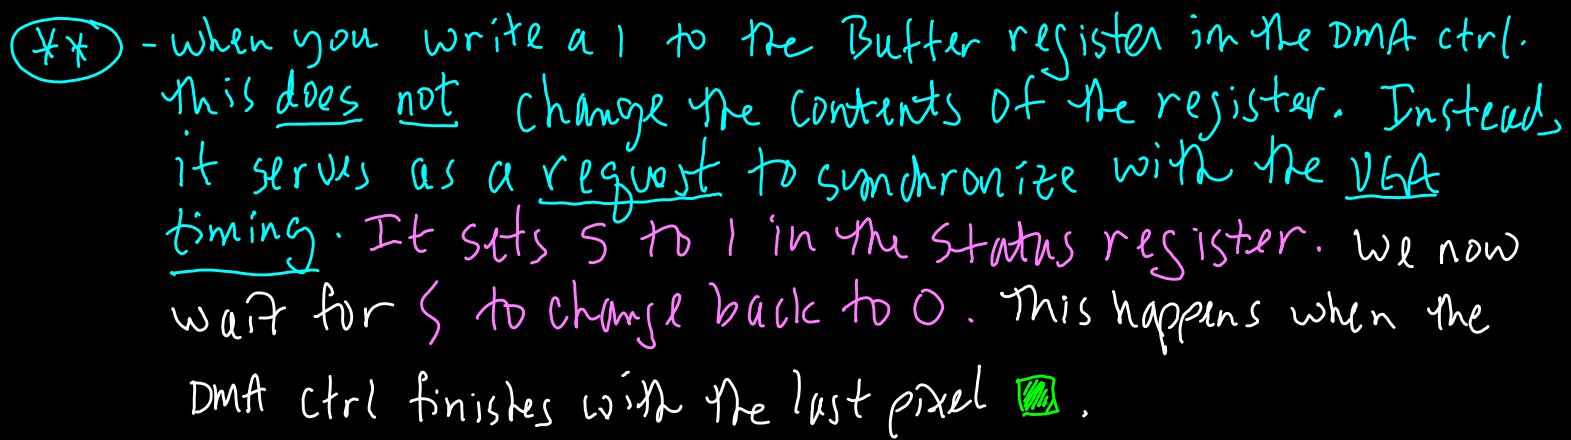 ** - when you write a 1 to the Buffer register in the DMA ctrl.
this does not change the contents of the register. Instead,
it serves as a request to synchronize with the VGA
timing. It sets S to 1 in the status register. we now
wait for S to change back to 0. This happens when the
DMA ctrl finishes with the last pixel .